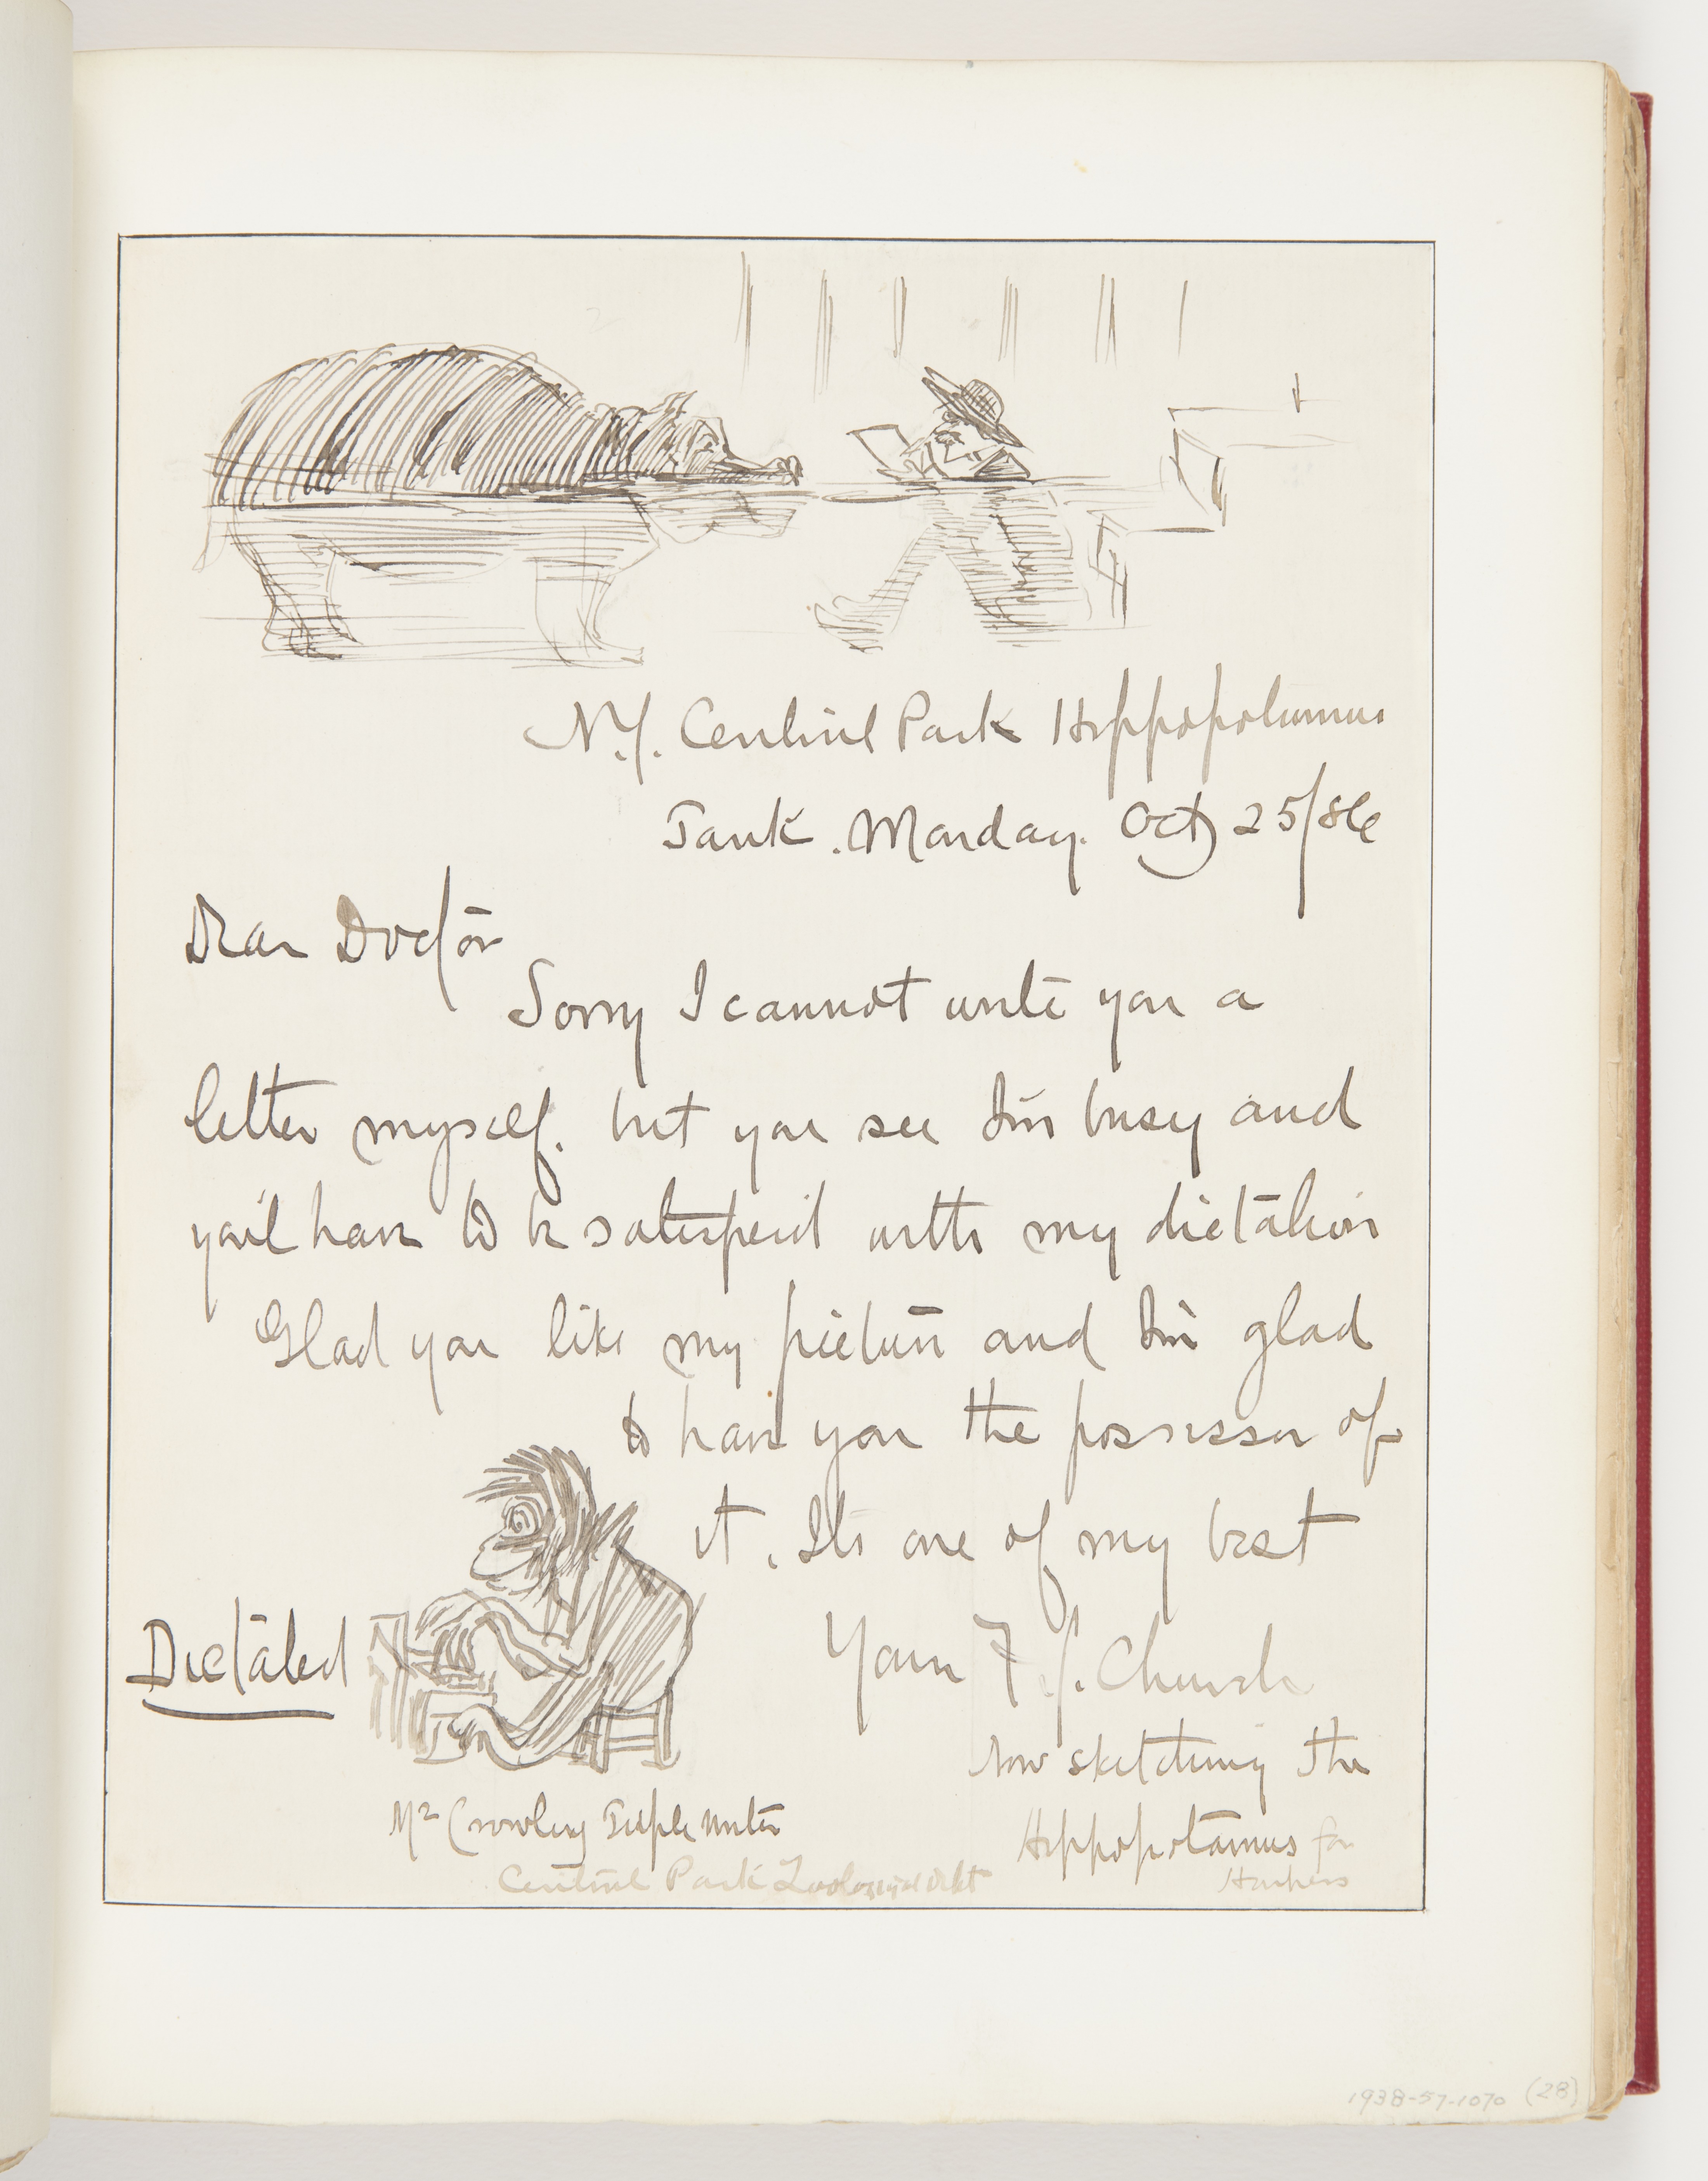 N.Y. Central Park Hippopotamus
Tank. Monday. Oct 25/86
Dear Doctor
Sorry I cannot write you a
letter myself. but you see I'm busy and
you'll have to be satisfied with my dictation
Glad you like my picture and I'm glad
to have you the possessor of
it. Its one of my best
Dictated
Yours F. S. Church
Now sketching the
Hippopotamus for
Harpers
Mr Crowley Type writer
Central Park Zoological Dept
1938-57-1070 (28)